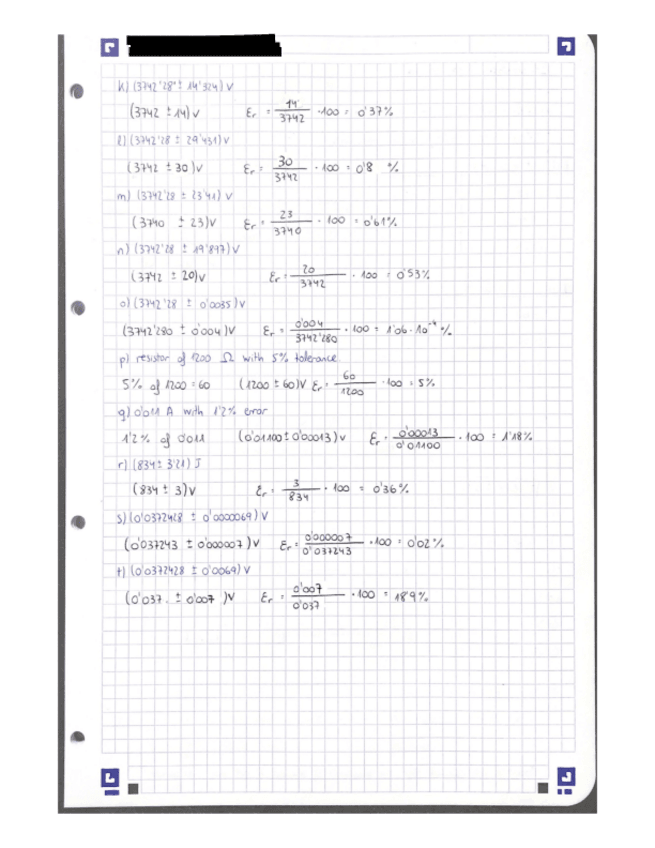 k) (3742'28 ± 14'324) V
(3742 ± 14) V   Er = 14/3742 · 100 = 0'37%
l) (3742'28 ± 29'431) V
(3742 ± 30) V   Er = 30/3742 · 100 = 0'8 %
m) (3742'28 ± 23'41) V
(3740 ± 23) V   Er = 23/3740 · 100 = 0'61%
n) (3742'28 ± 19'897) V
(3742 ± 20) V   Er = 20/3742 · 100 = 0'53%
o) (3742'28 ± 0'0035) V
(3742'280 ± 0'004) V   Er = 0'004/3742'280 · 100 = 1'06·10⁻⁴ %
p) resistor of 1200 Ω with 5% tolerance
5% of 1200 = 60   (1200 ± 60) V   Er = 60/1200 · 100 = 5%
q) 0'011 A with 1'2% error
1'2% of 0'011   (0'01100 ± 0'00013) V   Er = 0'00013/0'01100 · 100 = 1'18%
r) (834 ± 3'21) J
(834 ± 3) V   Er = 3/834 · 100 = 0'36%
s) (0'0372428 ± 0'0000069) V
(0'037243 ± 0'000007) V   Er = 0'000007/0'037243 · 100 = 0'02%
t) (0'0372428 ± 0'0069) V
(0'037 ± 0'007) V   Er = 0'007/0'037 · 100 = 18'9%